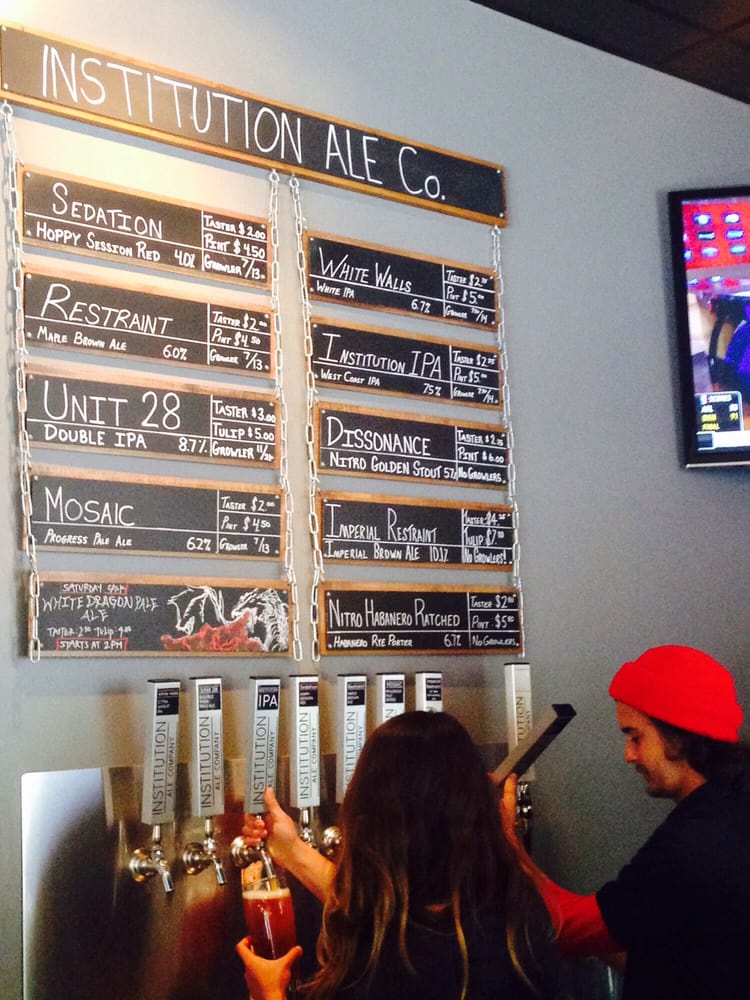 INSTITUTION ALE Co.
SEDATION
HOPPY SESSION RED 4.0%
TASTER $2.00
PINT $4.50
GROWLER 7/13.
RESTRAINT
MAPLE BROWN ALE 6.0%
TASTER $2.00
PINT $4.50
GROWLER 7/13.
UNIT 28
DOUBLE IPA 8.7%
TASTER $3.00
TULIP $5.00
GROWLER
MOSAIC
PROGRESS PALE ALE 6.2%
TASTER $2.00
PINT $4.50
GROWLER 7/13
SATURDAY
WHITE DRAGON PALE
ALE
TASTER TULIP
STARTS AT 2PM
WHITE WALLS
WHITE IPA 6.7%
TASTER $2.75
PINT $5.00
GROWLER
INSTITUTION IPA
WEST COAST IPA 7.5%
TASTER $2.75
PINT $5.00
GROWLER
DISSONANCE
NITRO GOLDEN STOUT 5%
TASTER $2.75
PINT $6.00
NO GROWLERS.
IMPERIAL RESTRAINT
IMPERIAL BROWN ALE 10.1%
TASTER $4.
TULIP $7.
NO GROWLERS!
NITRO HABANERO RATCHED
HABANERO RYE PORTER 6.7%
TASTER $2
PINT $5
NO GROWLERS.
INSTITUTION
ALE COMPANY
UNIT 28
INSTITUTION
ALE COMPANY
IPA
INSTITUTION
ALE COMPANY
INSTITUTION
ALE COMPANY
INSTITUTION
MOSAIC